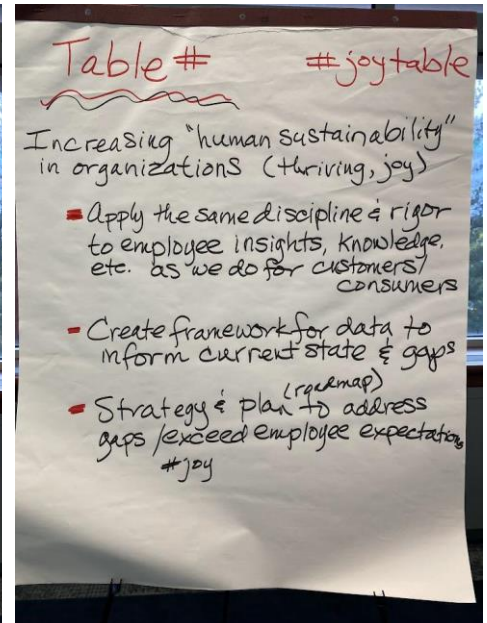 Table # #joytable
Increasing "human sustainability"
in organizations (thriving, joy)
- Apply the same discipline & rigor
to employee insights, knowledge,
etc. as we do for customers/
consumers
- Create framework for data to
inform current state & gaps
(roadmap)
- Strategy & plan to address
gaps /exceed employee expectations
#joy